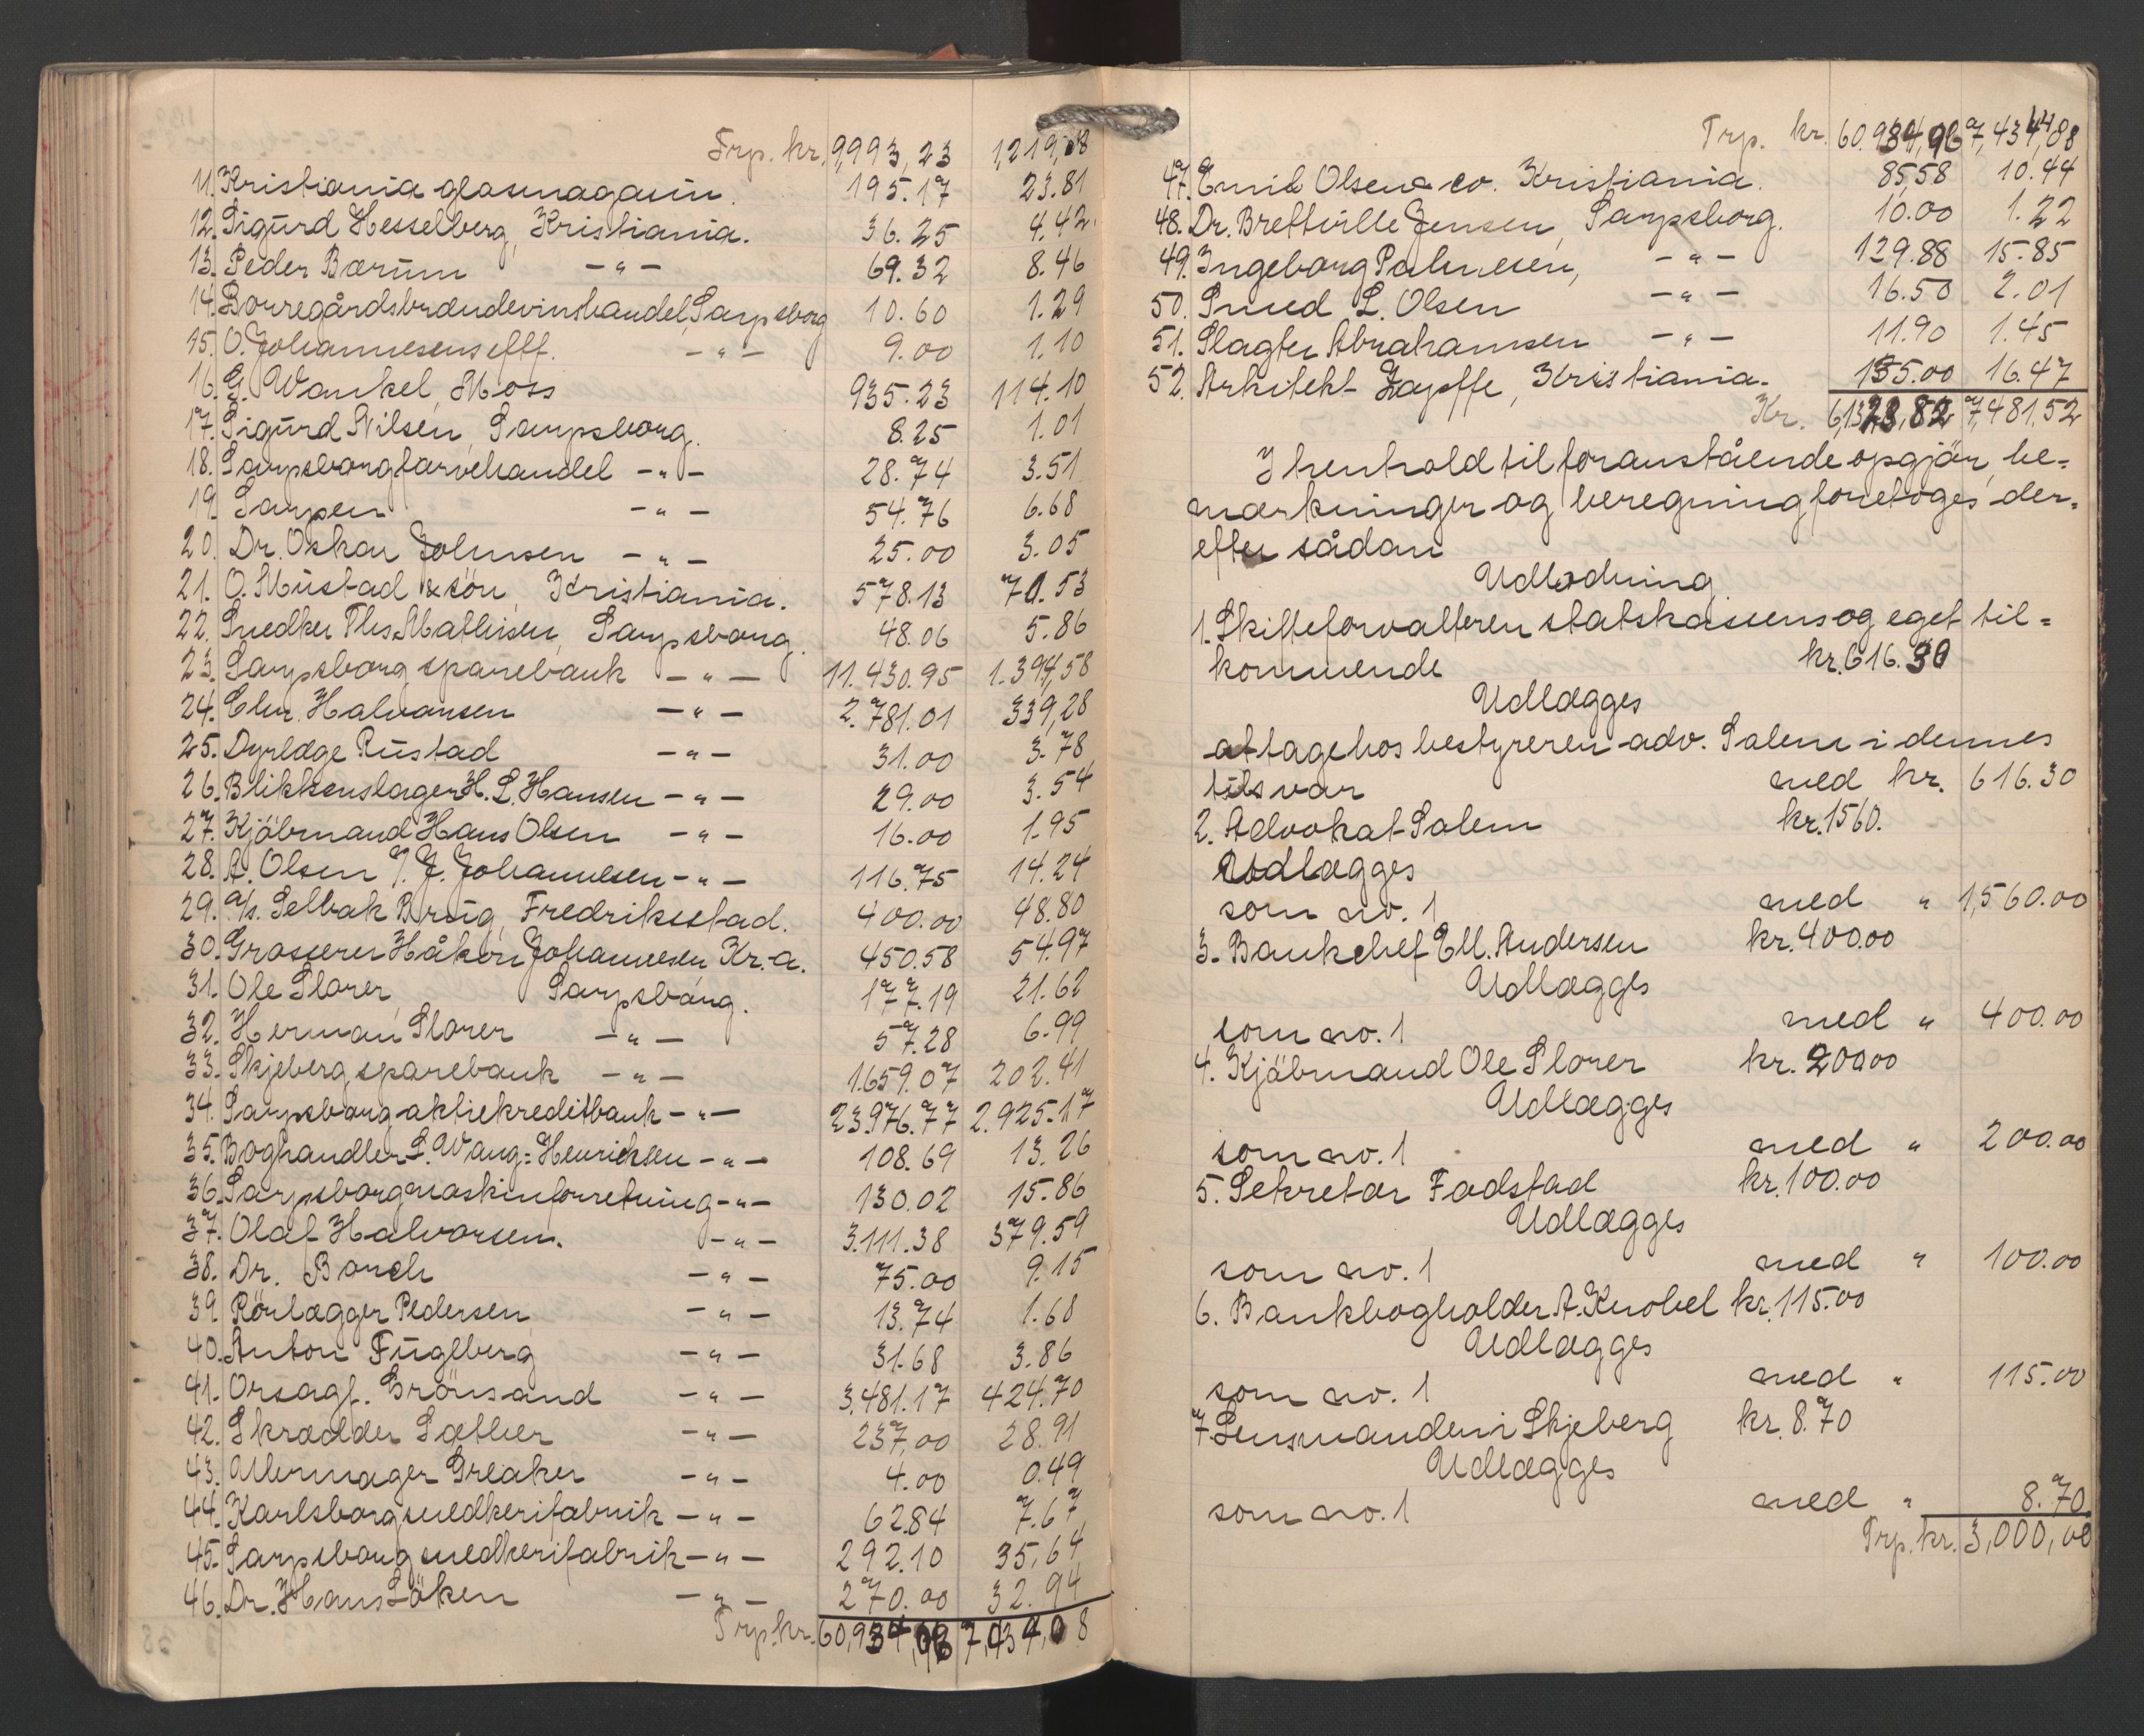 Trp. kr. 9,993,23 1,219,08
11. Kristiania glasmagasin. 195.17 23.81
12. Sigurd Hesselberg, Kristiania. 36.25 4.42
13. Peder Bærum —"— 69.32 8.46
14. Borregårdsbrændevinshandel, Sarpsborg 10.60 1.29
15. O. Johannesens eftf. —"— 9.00 1.10
16. G. Wankel, Moss 935.23 114.10
17. Sigurd Nilsen, Sarpsborg. 8.25 1.01
18. Sarpsborg farvehandel —"— 28.74 3.51
19. Sarpen —"— 54.76 6.68
20. Dr. Oskar Johnsen —"— 25.00 3.05
21. O. Mustad & sön, Kristiania. 578.13 70.53
22. Snedker Ths. Mathisen, Sarpsborg. 48.06 5.86
23. Sarpsborg sparebank —"— 11.430.95 1.394,58
24. Chr. Halvorsen —"— 2.781.01 339,28
25. Dyrlæge Rustad —"— 31.00 3.78
26. Blikkenslager H. L. Hansen —"— 29.00 3.54
27. Kjöbmand Hans Olsen —"— 16.00 1.95
28. A. Olsen J. J. Johannesen —"— 116.75 14.24
29. A/s. Selbak Brug, Fredriksstad. 400.00 48.80
30. Grosserer Håkon Johannesen Kr.a. 450.58 54.97
31. Ole Storer, Sarpsborg. 177.19 21.62
32. Herman Storer —"— 57.28 6.99
33. Skjeberg sparebank —"— 1.659.07 202.41
34. Sarpsborg aktiekreditbank —"— 23.976.77 2.925.17
35. Boghandler L. Wang-Henriksen —"— 108.69 13.26
36. Sarpsborg maskinforretning —"— 130.02 15.86
37. Olaf Halvorsen. —"— 3.111.38 379.59
38. Dr. Borch —"— 75.00 9.15
39. Rörlægger Pedersen —"— 13.74 1.68
40. Anton Fuglberg —"— 31.68 3.86
41. Orsagf. Grönsand —"— 3.481.17 424.70
42. Skrædder Sæther —"— 237,00 28.91
43. Uhrmager Greaker —"— 4.00 0.49
44. Karlsborg snedkerifabrik —"— 62.84 7.67
45. Sarpsborg snedkerifabrik —"— 292.10 35,64
46. Dr. Hans Löken —"— 270.00 32.94
Trp. kr. 60,934,96 7,434,08
Trp. kr. 60.934,96 7,434,08
47. Emil Olsen & co. Kristiania. 85,58 10.44
48. Dr. Brettville Jensen, Sarpsborg. 10.00 1.22
49. Ingeborg Palmesen, —"— 129.88 15.85
50. Smed L. Olsen —"— 16.50 2.01
51. Slagter Abrahamsen —"— 11.90 1.45
52. Arkitekt Zapffe, Kristiania. 135.00 16.47
Kr. 61,323,82 7,481,52
I henhold til foranstående opgjör, be=
mærkninger og beregning foretoges der=
efter sådan
Udlodning.
1. Skifteforvalteren statskassens og eget til=
kommende kr. 616.30
Udlægges
at tage hos bestyreren adv. Salem i dennes
tilsvar med kr. 616.30
2. Advokat Salem kr. 1560.
Udlægges
som no. 1 med " 1,560.00
3. Bankchef Ell. Andersen kr. 400.00
Udlægges
som no. 1 med " 400.00
4. Kjöbmand Ole Storer kr. 200.00
Udlægges
som no. 1 med " 200.00
5. Sekretær Fadstad kr. 100.00
Udlægges
som no. 1 med " 100.00
6. Bankbogholder A. Knobel kr. 115.00
Udlægges
som no. 1 med " 115.00
7. Lensmanden i Skjeberg kr. 8.70
Udlægges
som no. 1 med " 8.70
Trp. kr. 3,000,00